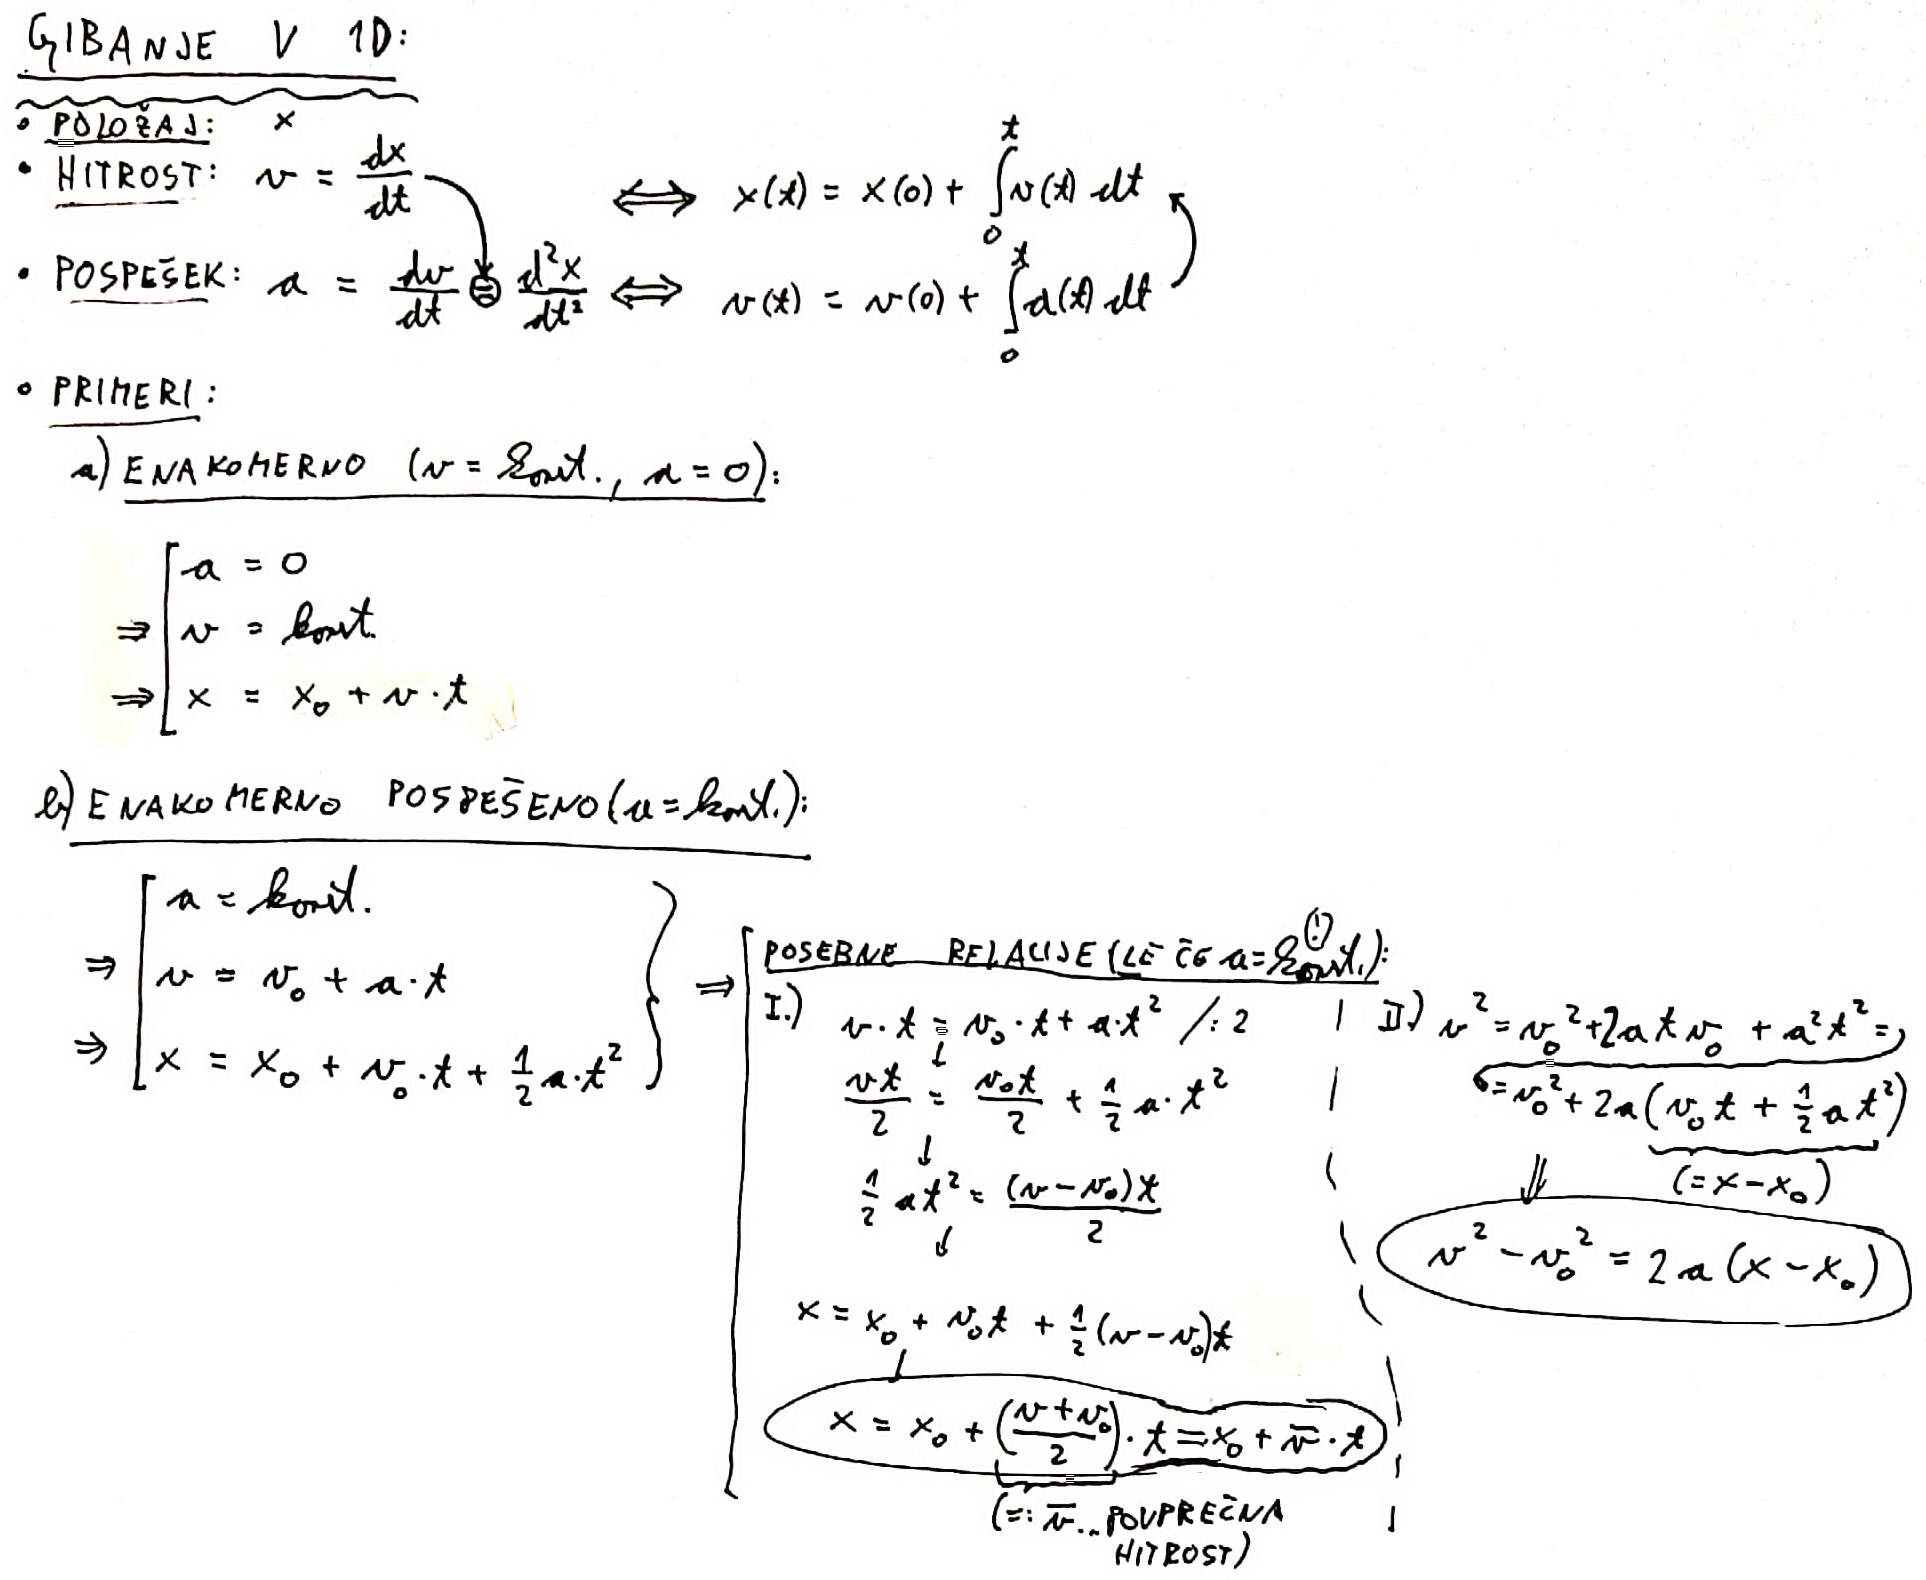 GIBANJE V 1D:
• POLOŽAJ: x
• HITROST: v = dx/dt ⟺ x(t) = x(0) + ∫₀ᵗ v(t) dt
• POSPEŠEK: a = dv/dt = d²x/dt² ⟺ v(t) = v(0) + ∫₀ᵗ a(t) dt
• PRIMERI:
a) ENAKOMERNO (v = konst., a = 0):
a = 0
⇒ v = konst.
⇒ x = x₀ + v·t
b) ENAKOMERNO POSPEŠENO (a = konst.):
a = konst.
⇒ v = v₀ + a·t
⇒ x = x₀ + v₀·t + 1/2 a·t²
⇒ POSEBNE RELACIJE (LE ČE a = konst.(!)):
I.) v·t = v₀·t + a·t² /:2
↓
vt/2 = v₀t/2 + 1/2 a·t²
↓
1/2 at² = (v - v₀)t/2
↓
x = x₀ + v₀t + 1/2 (v - v₀)t
x = x₀ + ((v + v₀)/2)·t = x₀ + v̄·t
(=: v̄... POVPREČNA
HITROST)
II.) v² = v₀² + 2atv₀ + a²t² =
= v₀² + 2a(v₀t + 1/2 at²)
(= x - x₀)
⇓
v² - v₀² = 2a(x - x₀)